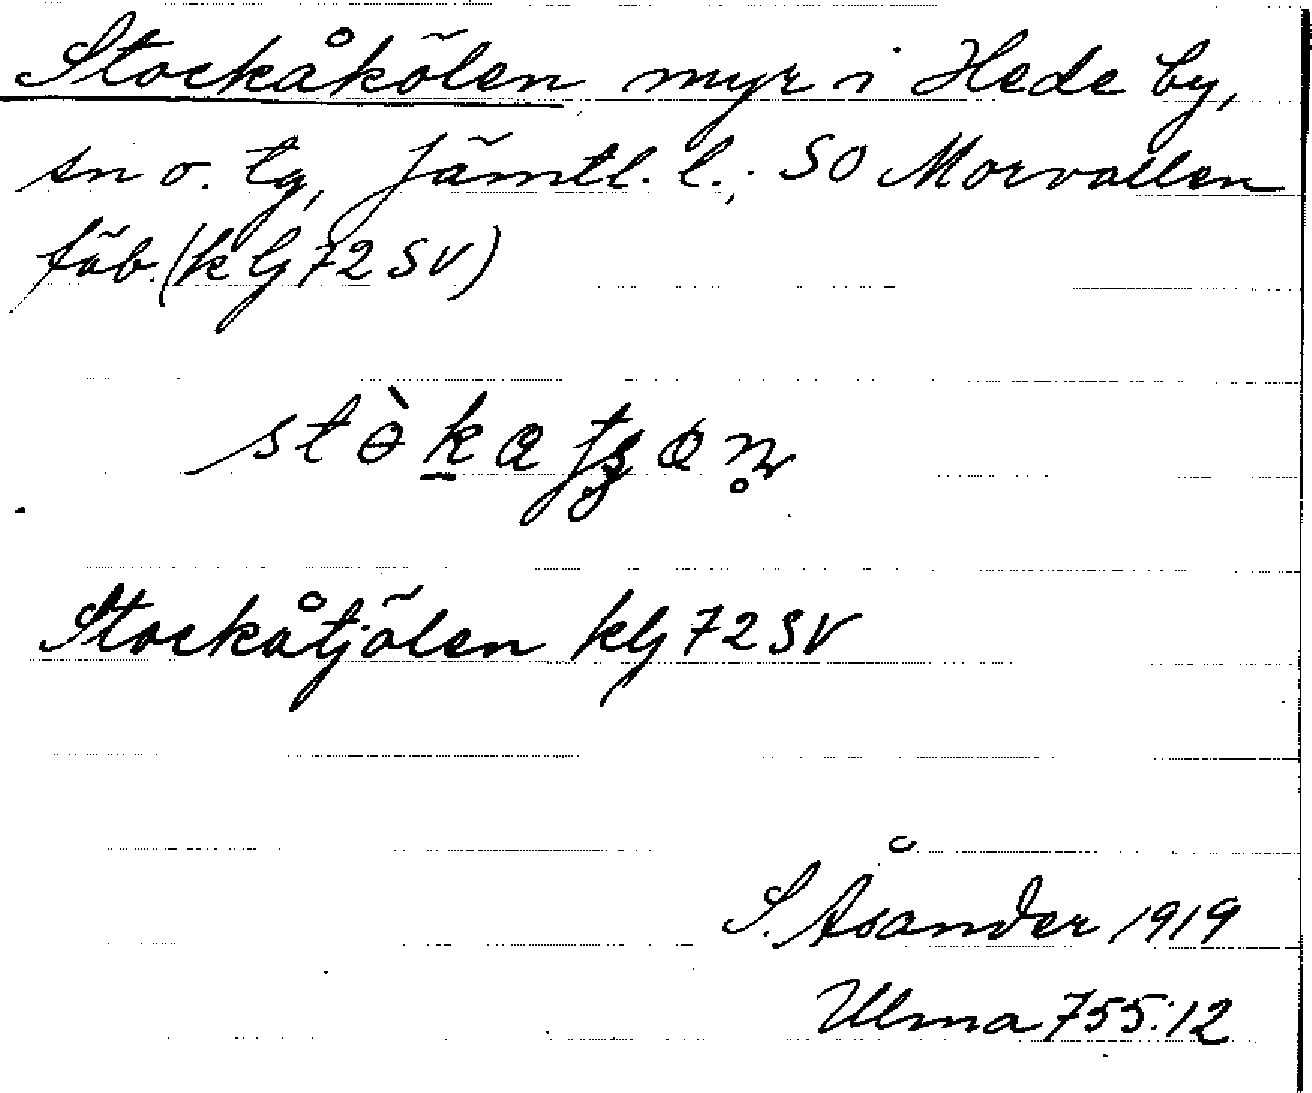 Stockåkölen myr i Hede by,
sn o. tg, Jämtl. l.; SO Morvallen
fäb. (kbl 72 SV)
Stockåtjölen kbl 72 SV
S. Åsander 1919
Ulma 755:12